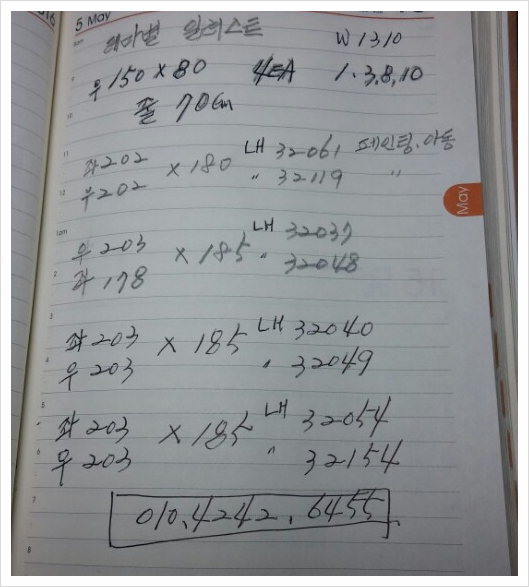 5 May
테마별 일러스트
W1310
우 150 x 80 4EA 1.3,8,10
폴 70Cm
좌 202 x 180 LH 32061 페인팅.아동
우 202 〃 32119 〃
우 203 x 185 LH 32037
좌 178 〃 32048
좌 203 x 185 LH 32040
우 203 〃 32049
좌 203 x 185 LH 32054
우 203 〃 32154
010.4242.6455
May